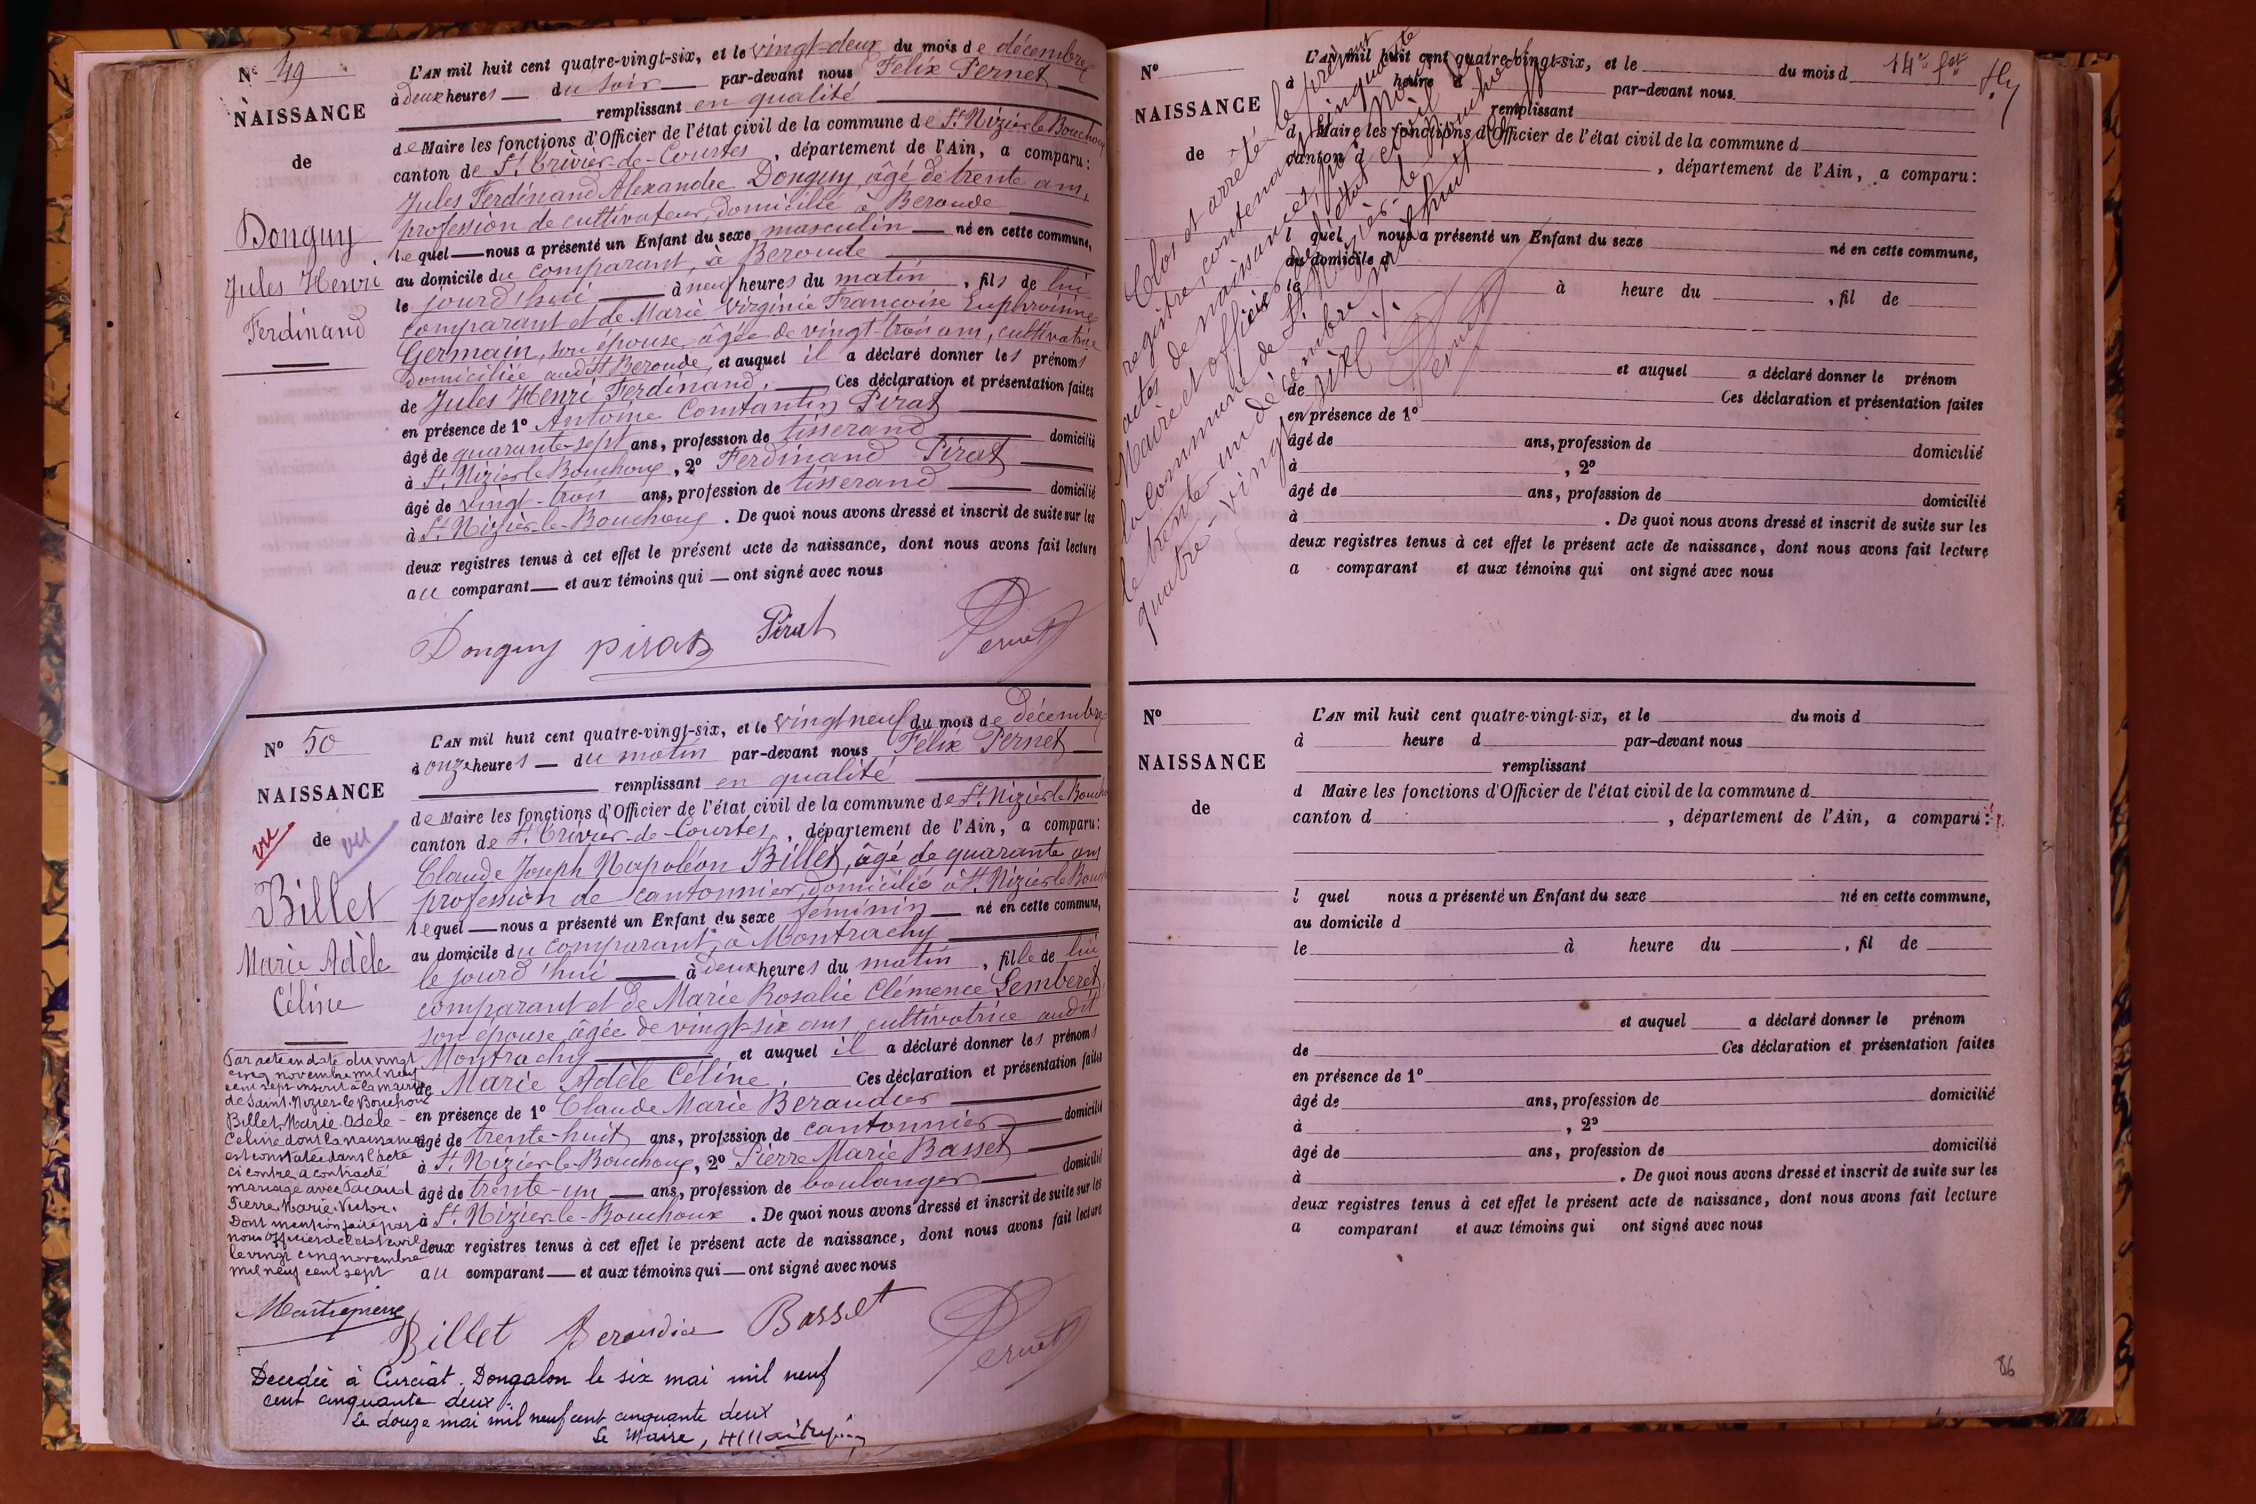 N° 49
NAISSANCE
de
Donguy
Jules Henri
Ferdinand
L'AN mil huit cent quatre-vingt-six, et le vingt-deux du mois de décembre
à deux heures — du soir — par-devant nous Félix Pernet
remplissant en qualité
de Maire les fonctions d'Officier de l'état civil de la commune de St Nizier le Bouchoux
canton de St Trivier-de-Courtes, département de l'Ain, a comparu:
Jules Ferdinand Alexandre Donguy, âgé de trente ans,
profession de cultivateur, domicilié à Beroude
lequel — nous a présenté un Enfant du sexe masculin — né en cette commune,
au domicile du comparant, à Beroude
le jourd'hui — à neuf heures du matin, fils de lui
comparant et de Marie Virginie Françoise Euphrosine
Germain, son épouse, âgée de vingt-trois ans, cultivatrice
domiciliée audit Beroude, et auquel il a déclaré donner les prénoms
de Jules Henri Ferdinand. — Ces déclaration et présentation faites
en présence de 1° Antoine Constantin Pirat
âgé de quarante-sept ans, profession de tisserand — domicilié
à St Nizier le Bouchoux, 2° Ferdinand Pirat
âgé de vingt-trois ans, profession de tisserand — domicilié
à St Nizier-le-Bouchoux. De quoi nous avons dressé et inscrit de suite sur les
deux registres tenus à cet effet le présent acte de naissance, dont nous avons fait lecture
au comparant — et aux témoins qui — ont signé avec nous
Donguy pirat Pirat Pernet
N° 50
NAISSANCE
de
vu vu
Billet
Marie Adèle
Céline
L'AN mil huit cent quatre-vingt-six, et le vingt neuf du mois de décembre
à onze heures — du matin par-devant nous Félix Pernet
remplissant en qualité
de Maire les fonctions d'Officier de l'état civil de la commune de St Nizier le Bouchoux
canton de St Trivier-de-Courtes, département de l'Ain, a comparu:
Claude Joseph Napoléon Billet, âgé de quarante ans
profession de cantonnier, domicilié à St Nizier le Bouch
lequel — nous a présenté un Enfant du sexe féminin — né en cette commune,
au domicile du comparant, à Montrachy
le jourd'hui — à deux heures du matin, fille de lui
comparant et de Marie Rosalie Clémence Lemberet
son épouse âgée de vingt-six ans, cultivatrice audit
Montrachy — et auquel il a déclaré donner les prénoms
de Marie Adèle Céline. Ces déclaration et présentation faites
en présence de 1° Claude Marie Beraudier
âgé de trente-huit ans, profession de cantonnier — domicilié
à St Nizier-le-Bouchoux, 2° Pierre Marie Basset
âgé de trente-un — ans, profession de boulanger — domicilié
à St Nizier-le-Bouchoux. De quoi nous avons dressé et inscrit de suite sur les
deux registres tenus à cet effet le présent acte de naissance, dont nous avons fait lecture
au comparant — et aux témoins qui — ont signé avec nous
Par acte en date du vingt
cinq novembre mil neuf
cent sept inscrit à la mairie
de Saint-Nizier-le Bouchoux
Billet, Marie-Adèle-
Céline dont la naissance
est constatée dans l'acte
ci contre a contracté
mariage avec Pacaud
Pierre-Marie-Victor.
Dont mention faite par
nous officier de l'état civil
le vingt cinq novembre
mil neuf cent sept
Billet Beraudier Basset Pernet
Décédée à Curciat-Dongalon le six mai mil neuf
cent cinquante deux.
Le douze mai mil neuf cent cinquante deux
Le Maire,
N°
NAISSANCE
de
14e fet
L'AN mil huit cent quatre-vingt-six, et le du mois d
à heure d par-devant nous
remplissant
d Maire les fonctions d'Officier de l'état civil de la commune d
canton d , département de l'Ain, a comparu:
l quel nous a présenté un Enfant du sexe né en cette commune,
au domicile d
le à heure du , fil de
et auquel a déclaré donner le prénom
de Ces déclaration et présentation faites
en présence de 1°
âgé de ans, profession de domicilié
à , 2°
âgé de ans, profession de domicilié
à . De quoi nous avons dressé et inscrit de suite sur les
deux registres tenus à cet effet le présent acte de naissance, dont nous avons fait lecture
a comparant et aux témoins qui ont signé avec nous
Clos et arrêté le présent
registre, contenant cinquante
actes de naissances, par nous
Maire et officier de l'état civil de
la commune de St Nizier-le-Bouchoux
le trente-un décembre mil huit cent
quatre-vingt six ./.
Pernet
N°
NAISSANCE
de
L'AN mil huit cent quatre-vingt-six, et le du mois d
à heure d par-devant nous
remplissant
d Maire les fonctions d'Officier de l'état civil de la commune d
canton d , département de l'Ain, a comparu:
l quel nous a présenté un Enfant du sexe né en cette commune,
au domicile d
le à heure du , fil de
et auquel a déclaré donner le prénom
de Ces déclaration et présentation faites
en présence de 1°
âgé de ans, profession de domicilié
à , 2°
âgé de ans, profession de domicilié
à . De quoi nous avons dressé et inscrit de suite sur les
deux registres tenus à cet effet le présent acte de naissance, dont nous avons fait lecture
a comparant et aux témoins qui ont signé avec nous
86